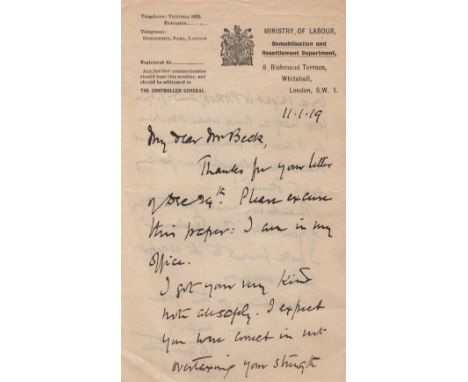 Telephone: VICTORIA
Extension
Telegrams:
LONDON
Registered No.
Any further communication
should bear this number, and
should be addressed to
THE CONTROLLER GENERAL.
MINISTRY OF LABOUR,
Demobilisation and
Resettlement Department,
8, Richmond Terrace,
Whitehall,
London, S.W. 1.
11.1.19
My dear Mr Beck,
Thanks for your letter
of Dec 24th. Please excuse
this paper: I am in my
office.
I got your very kind
note I expect
you were correct in not
overtaxing your strength